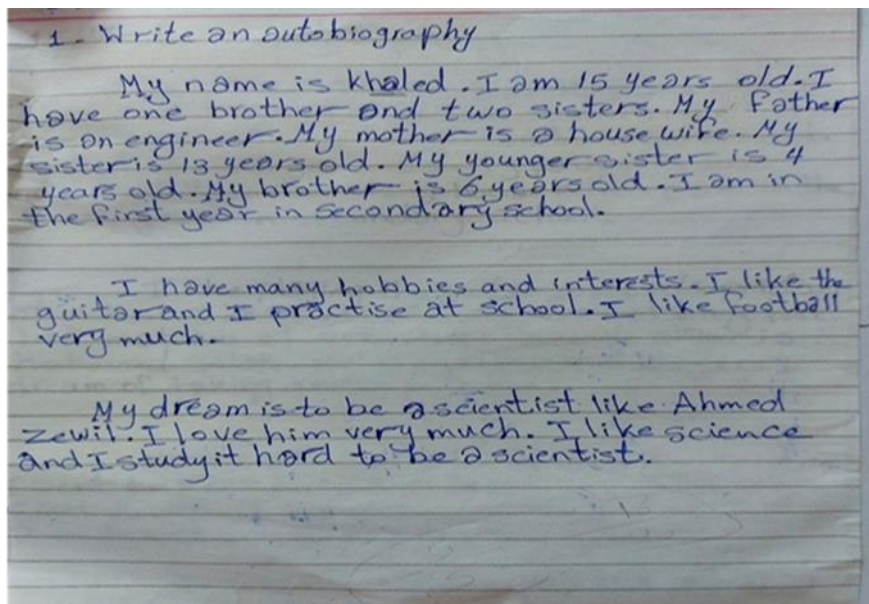 1. Write an autobiography
My name is khaled. I am 15 years old. I
have one brother and two sisters. My father
is an engineer. My mother is a house wife. My
sister is 13 years old. My younger sister is 4
years old. My brother is 6 years old. I am in
the first year in secondary school.
I have many hobbies and interests. I like the
guitar and I practise at school. I like football
very much.
My dream is to be a scientist like Ahmed
Zewil. I love him very much. I like science
and I study it hard to be a scientist.